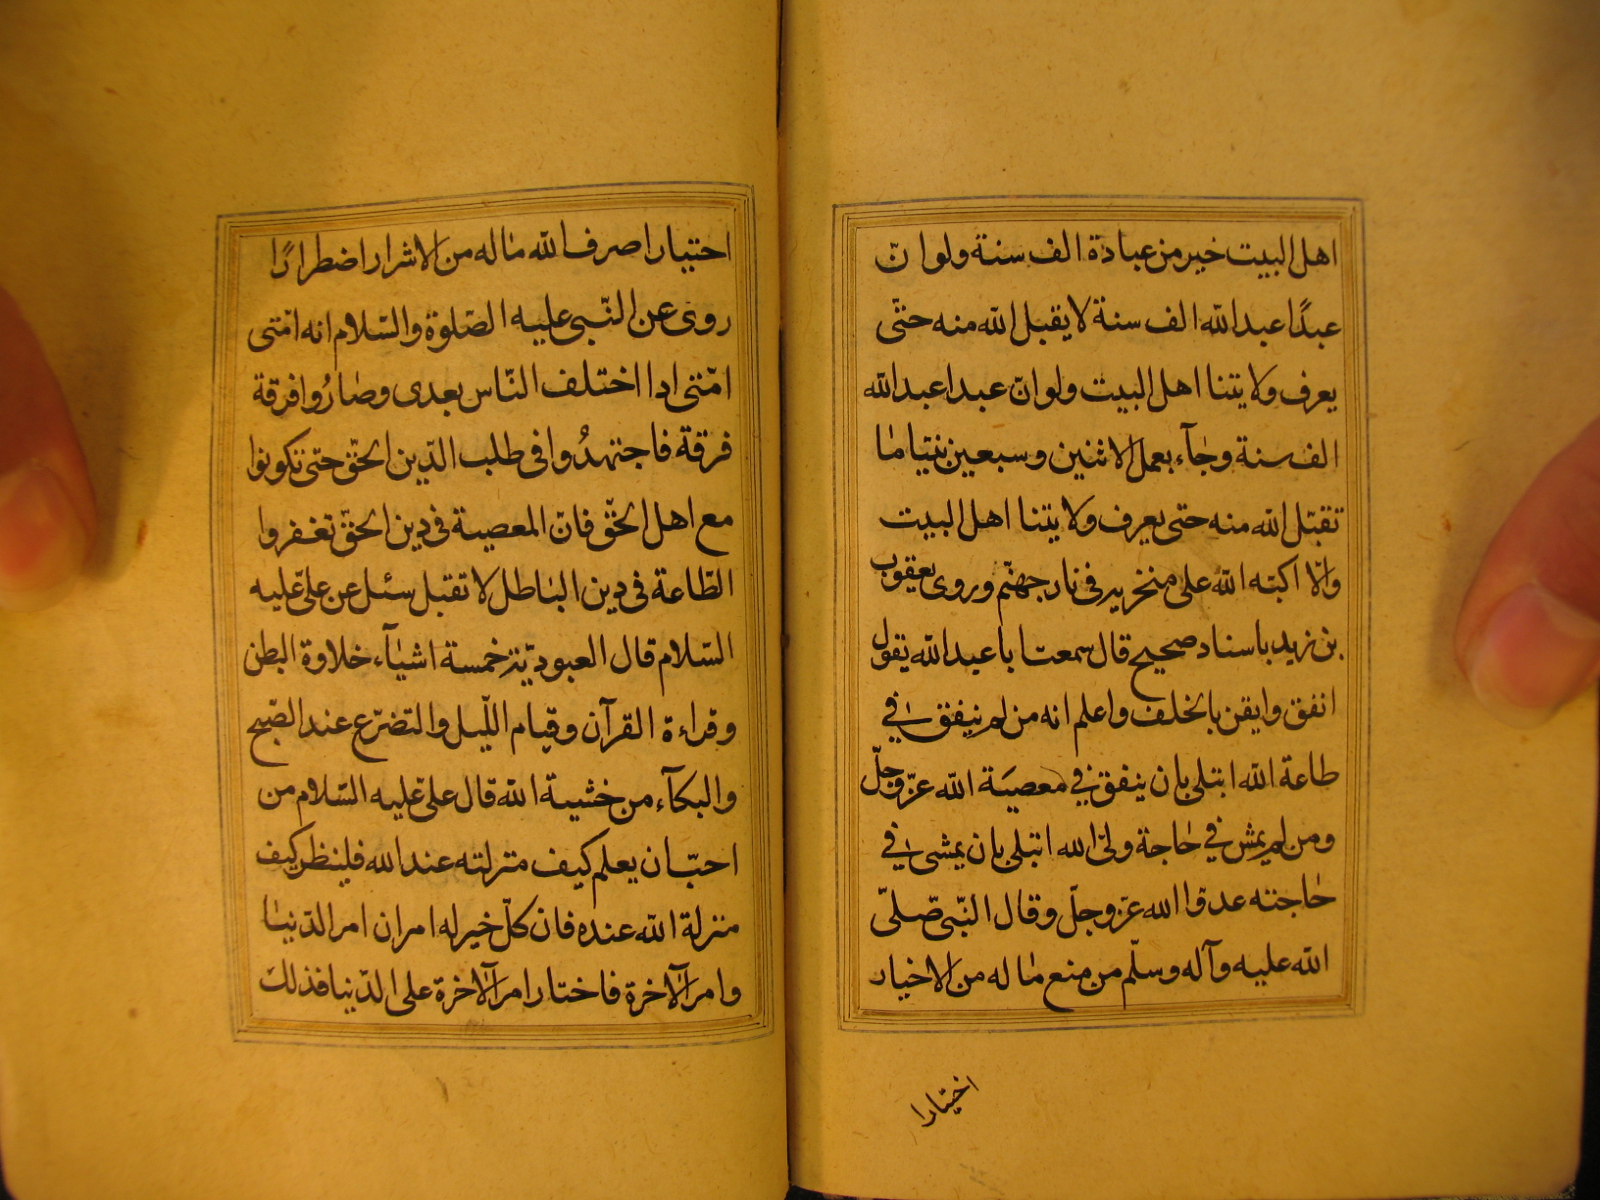 اهل البيت خير من عبادة الف سنة ولو انّ
عبدًا عبد الله الف سنة لا يقبل الله منه حتّى
يعرف ولايتنا اهل البيت ولو انّ عبدا عبد الله
الف سنة وجآء بعمل الاثنين وسبعين نبيّا ما
تقبّل الله منه حتى يعرف ولايتنا اهل البيت
والّا اكبّه الله على منخريه فى نار جهنّم وروى يعقوب
بن زيد باسناد صحيح قال سمعت ابا عبد الله يقول
انفق وايقن بالخلف واعلم انه من لم ينفق في
طاعة الله ابتلى بان ينفق في معصية الله عزّ وجلّ
ومن لم يمش في حاجة ولىّ الله ابتلى بان يمشى في
حاجته عدوّ الله عزّ وجلّ وقال النّبى صلّى
الله عليه وآله وسلّم من منع ماله من الاخيار
اختيارا
احتيارا صرف الله ماله من الاشرار اضطرارًا
روى عن النّبى عليه الصّلوة والسّلام انه امّتى
امّتى ادا اختلف النّاس بعدى وصارُوا فرقة
فرقة فاجتهدُوا فى طلب الدّين الحقّ حتى تكونوا
مع اهل الحقّ فانّ المعصية فى دين الحقّ تغفروا
الطّاعة فى دين الباطل لا تقبل سئل عن علىّ عليه
السّلام قال العبوديّة خمسة اشيآء خلاوة البطن
وقراءة القرآن وقيام اللّيل والتضرّع عند الصّبح
والبكآء من خشية الله قال علىّ عليه السّلام من
احبّ ان يعلم كيف منزلته عند الله فلينظر كيف
منزلة الله عنده فان كلّ خير له امران امر الدّنيا
وامر الآخرة فاختار امر الآخرة على الدّنيا فذلك